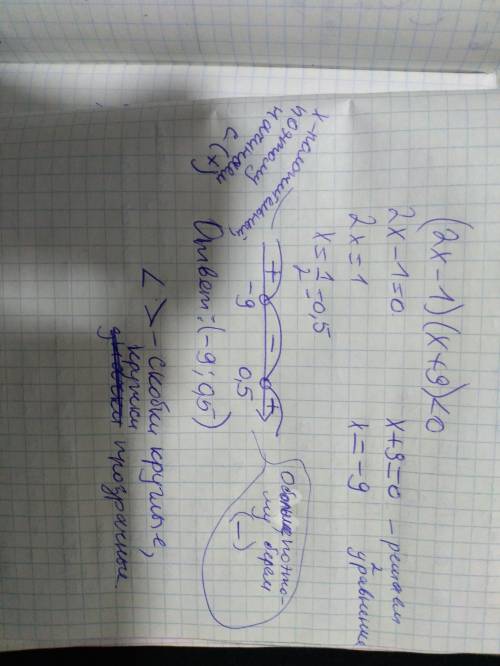 (2x-1)(x+9)<0
2x-1=0 x+9=0 - решаем
2x=1 x=-9 2 уравнения
x=1/2=0,5
x-положительный
поэтому
начинаем
с (x)
+ - +
-9 0,5
0 больше поэто-
му берем
(-)
Ответ: (-9; 0,5)
< > - скобки круглые,
кружки прозрачные